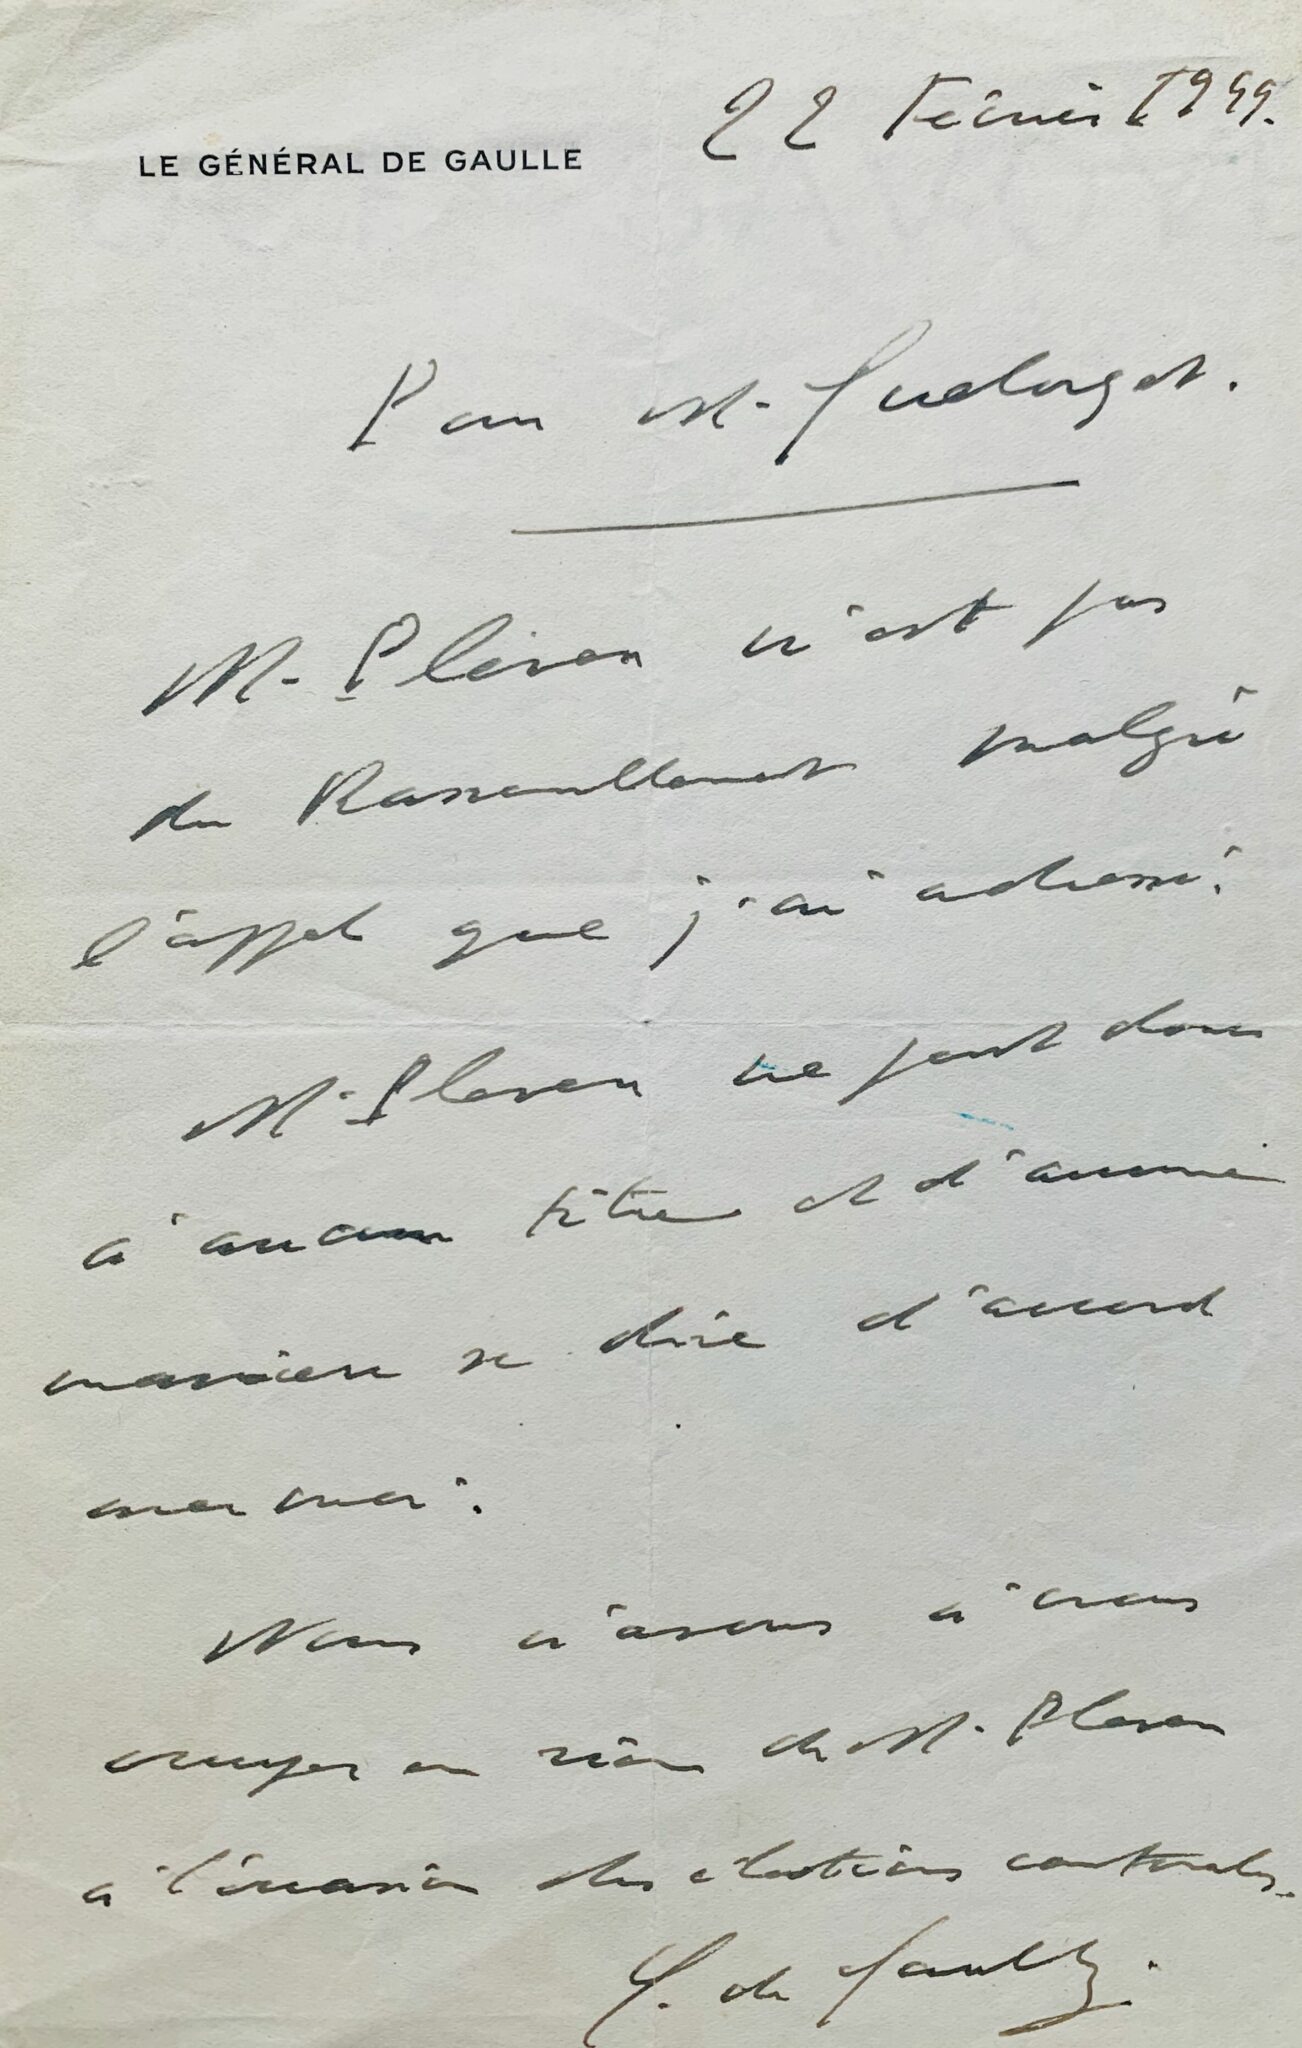 22 Février 1949.
LE GÉNÉRAL DE GAULLE
Pour M. Guelorget.
M. Pleven n'est pas
du Rassemblement malgré
l'appel que j'ai adressé.
M. Pleven ne peut donc
à aucun titre et d'aucune
manière se dire d'accord
avec moi.
Nous n'avons à nous
occuper en rien de M. Pleven
à l'occasion des élections cantonales.
C. de Gaulle.